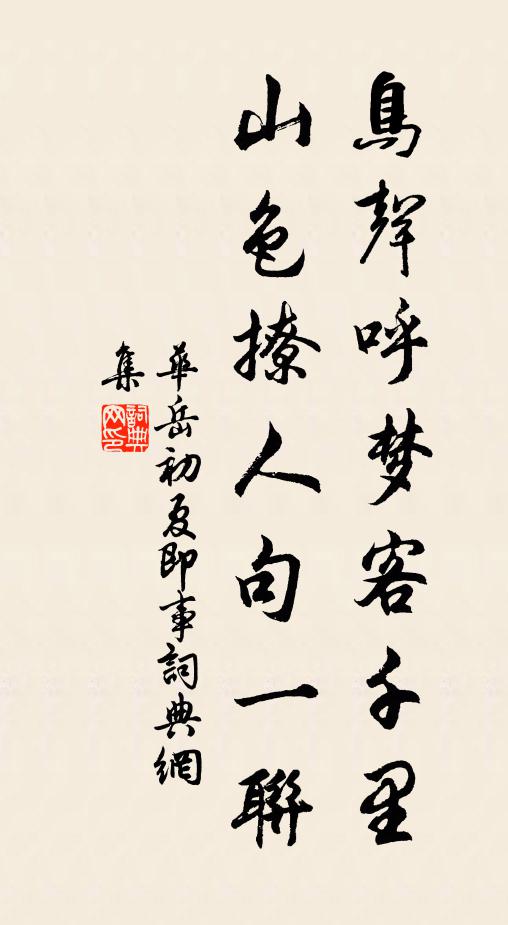 鳥聲呼梦客千里
山色撩人句一聯
華岳初夏即事詞典網
集
詞典
网印